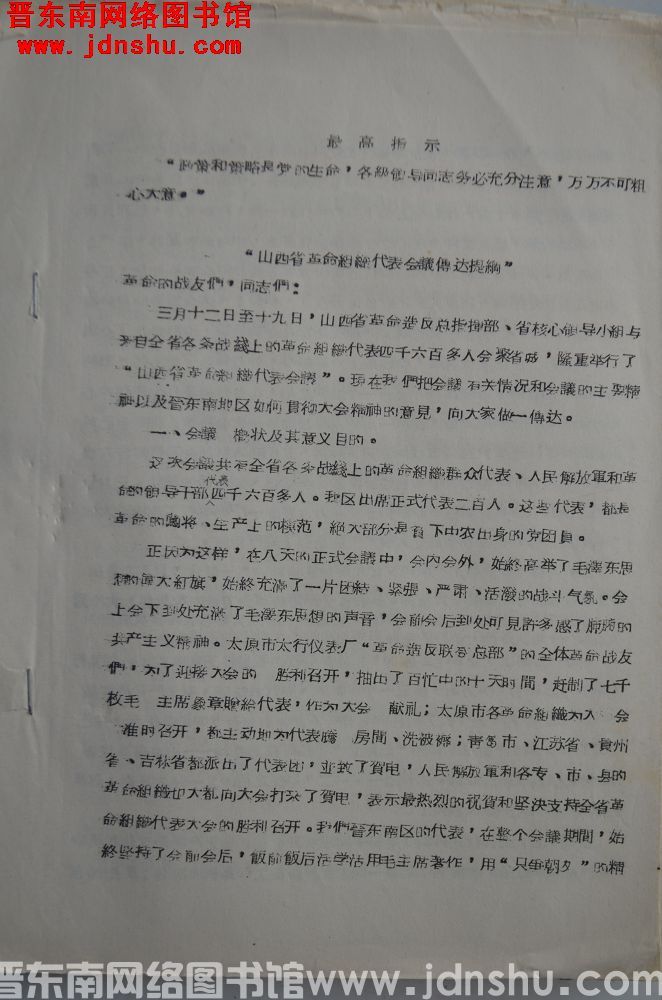 晋东南网络图书馆
www.jdnshu.com
最高指示
“政策和策略是党的生命，各級領导同志务必充分注意，万万不可粗
心大意。”
“山西省革命組織代表会議傳达提綱”
革命的战友們，同志們：
三月十二日至十九日，山西省革命造反总指揮部、省核心領导小組与
来自全省各条战线上的革命組織代表四千六百多人会聚省城，隆重举行了
“山西省革命組織代表会議”。現在我們把会議有关情况和会議的主要精
神以及晉东南地区如何貫彻大会精神的意見，向大家做一傳达。
一、会議 概状及其意义目的。
这次会議共有全省各条战线上的革命組織群众代表、人民解放軍和革
命的領导干部代表四千六百多人。我区出席正式代表二百人。这些代表，都是
革命的闖将、生产上的模范，絕大部分是貧下中农出身的党团員。
正因为这样，在八天的正式会議中，会內会外，始終高举了毛澤东思
想的偉大紅旗，始終充滿了一片团結、緊張、严肃、活潑的战斗气氛。会
上会下到处充滿了毛澤东思想的声音，会前会后到处可見許多感了肺腑的
共产主义精神。太原市太行仪表厂“革命造反联委总部”的全体革命战友
們，为了迎接大会的 胜利召开，抽出了百忙中的十天时間，赶制了七千
枚毛 主席像章贈給代表，作为大会 献礼；太原市各革命組織为大 会
准时召开，都主动地为代表騰 房間、洗被褥；青島市、江苏省、貴州
省、吉林省都派出了代表团，並致了賀电，人民解放軍和各专、市、县的
革命組織也大都向大会打来了賀电，表示最热烈的祝賀和坚决支持全省革
命組織代表大会的胜利召开。我們晉东南区的代表，在整个会議期間，始
終坚持了会前会后，飯前飯后活学活用毛主席著作，用“只争朝夕”的精
晋东南网络图书馆www.jdnshu.com